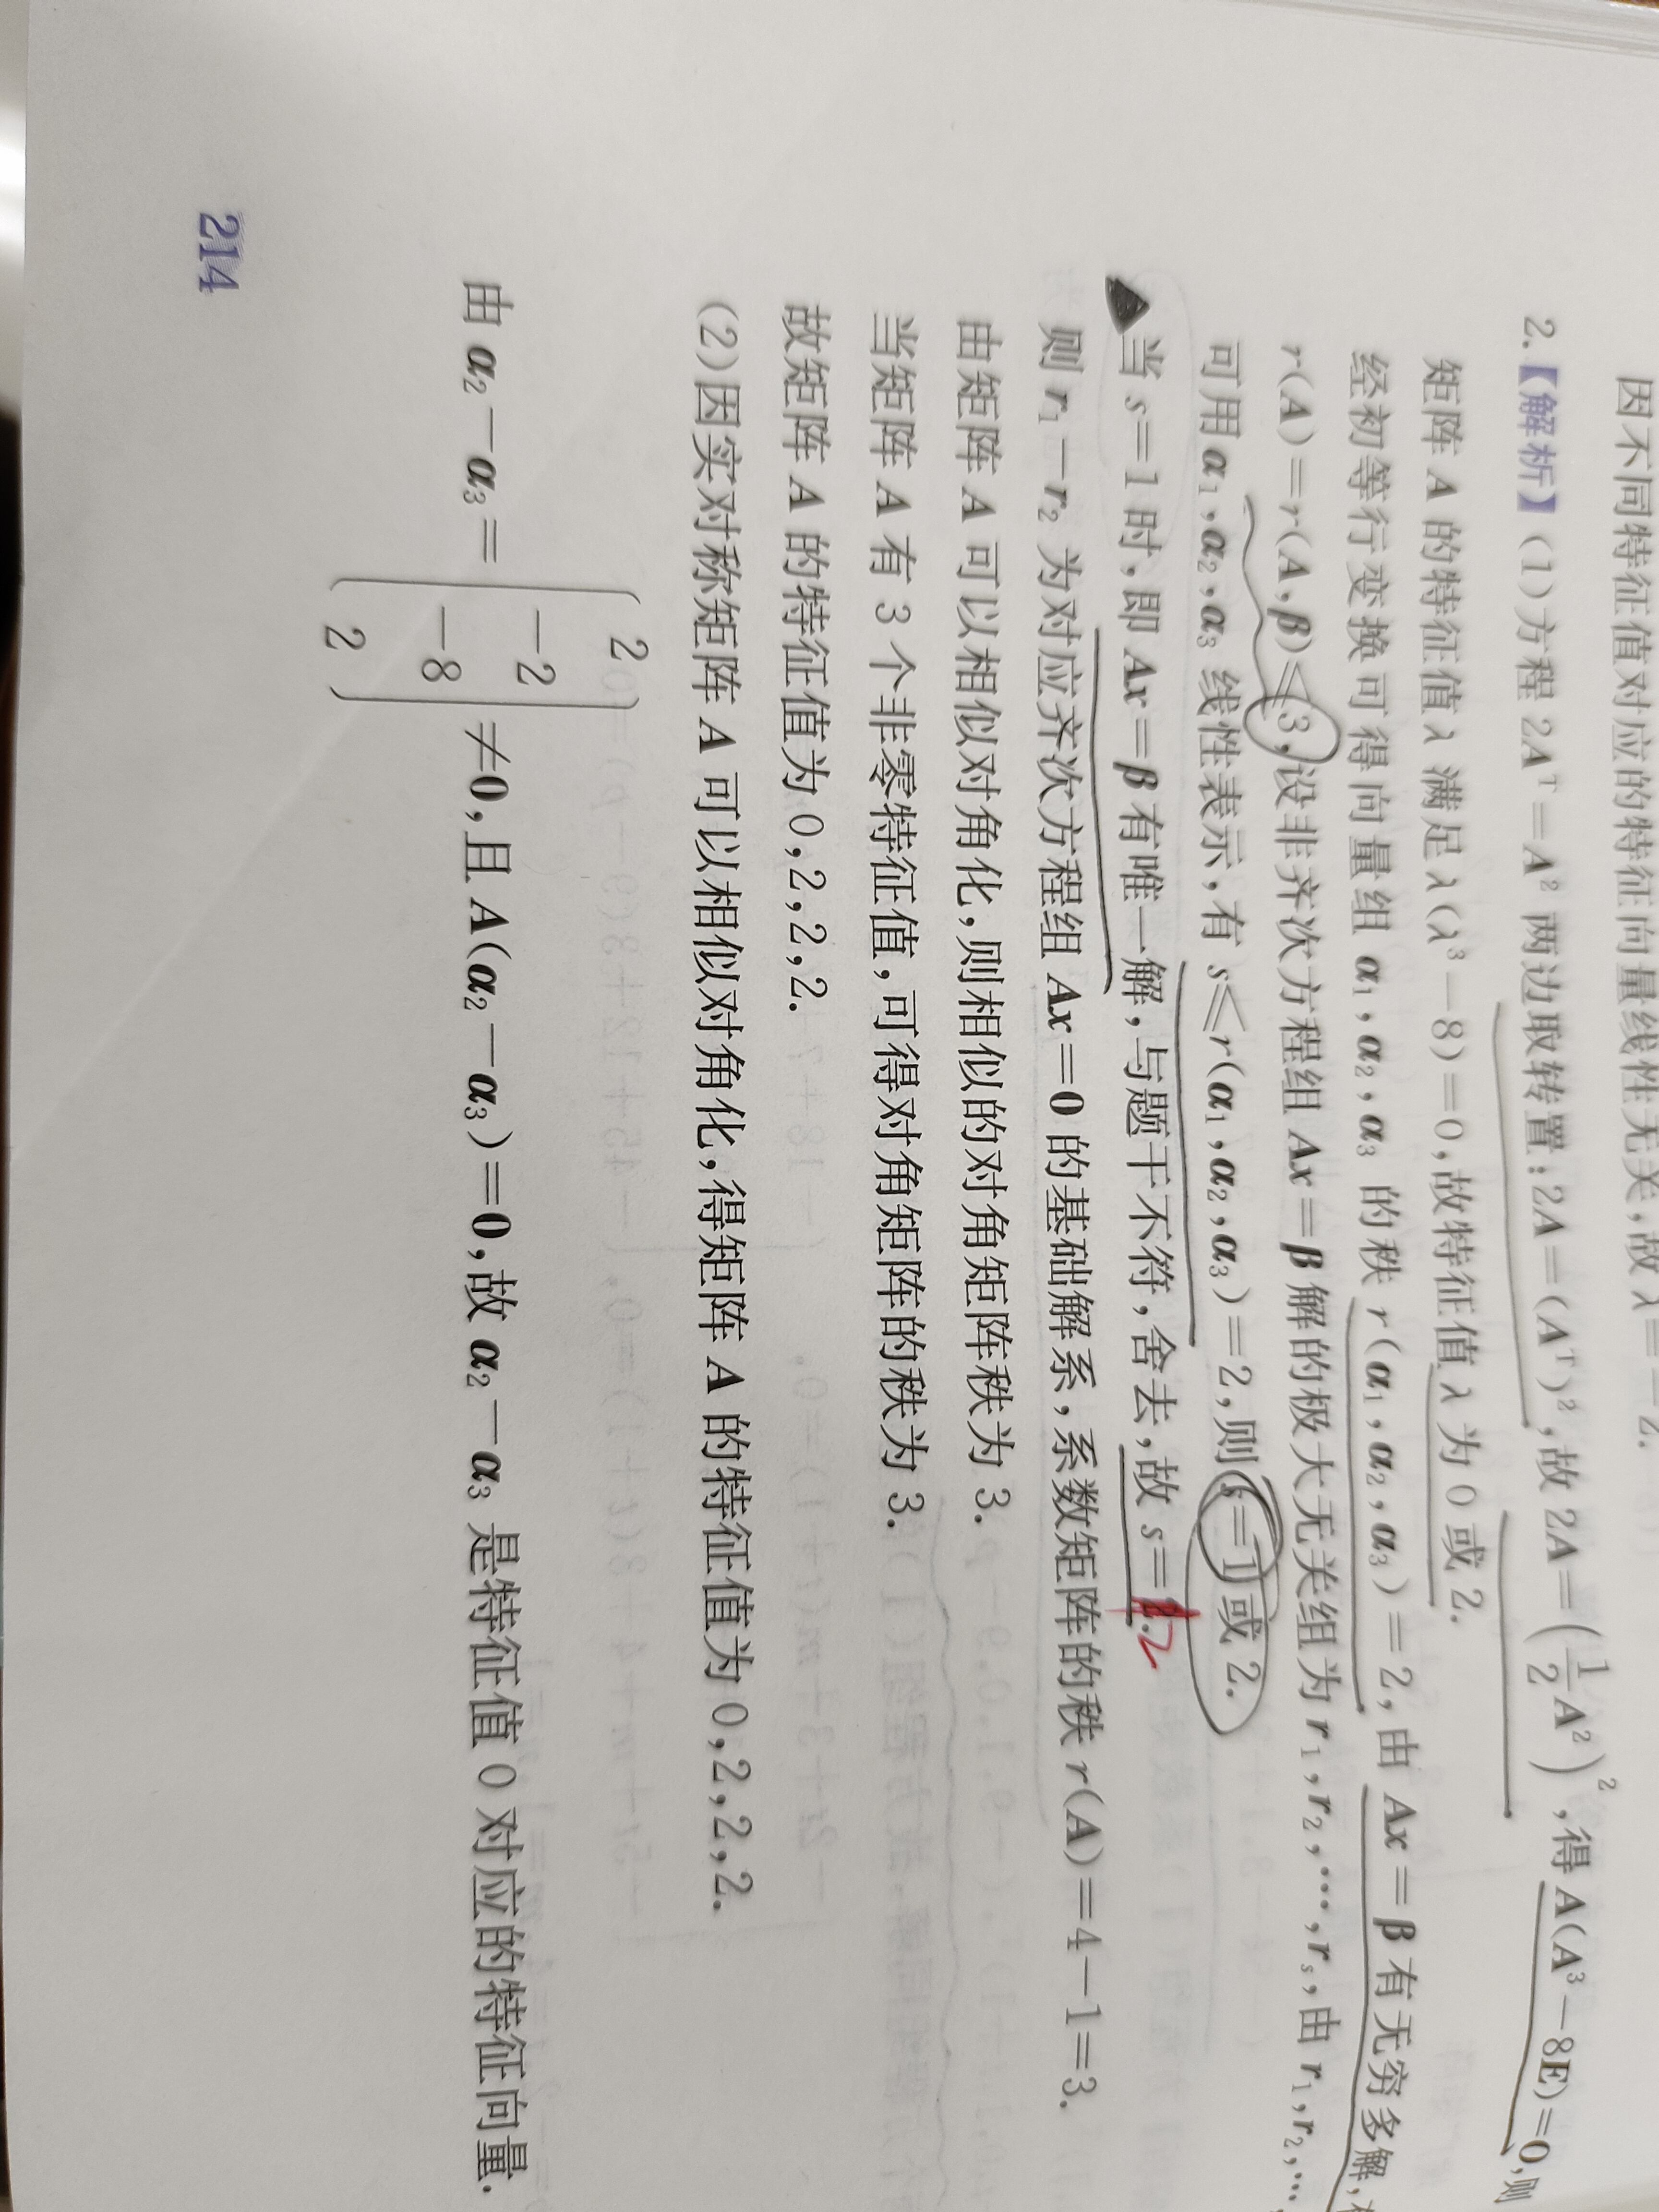 因不同特征值对应的特征向量线性无关,故 λ=−2.
2.【解析】(1)方程 2Aᵀ=A² 两边取转置:2A=(Aᵀ)²,故 2A=(1/2 A²)²,得 A(A³−8E)=0,则
矩阵 A 的特征值 λ 满足 λ(λ³−8)=0,故特征值 λ 为 0 或 2.
经初等行变换可得向量组 α₁,α₂,α₃ 的秩 r(α₁,α₂,α₃)=2,由 Ax=β 有无穷多解,
r(A)=r(A,β)≤3,设非齐次方程组 Ax=β 解的极大无关组为 r₁,r₂,…,rₛ,由 r₁,r₂,…
可用 α₁,α₂,α₃ 线性表示,有 s≤r(α₁,α₂,α₃)=2,则 s=1 或 2.
当 s=1 时,即 Ax=β 有唯一解,与题干不符,舍去,故 s=2.
则 r₁−r₂ 为对应齐次方程组 Ax=0 的基础解系,系数矩阵的秩 r(A)=4−1=3.
由矩阵 A 可以相似对角化,则相似的对角矩阵秩为 3.
当矩阵 A 有 3 个非零特征值,可得对角矩阵的秩为 3.
故矩阵 A 的特征值为 0,2,2,2.
(2)因实对称矩阵 A 可以相似对角化,得矩阵 A 的特征值为 0,2,2,2.
由 α₂−α₃=(2 −2 −8 2)≠0,且 A(α₂−α₃)=0,故 α₂−α₃ 是特征值 0 对应的特征向量.
214